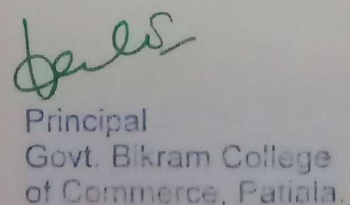 Principal
Govt. Bikram College
of Commerce, Patiala.